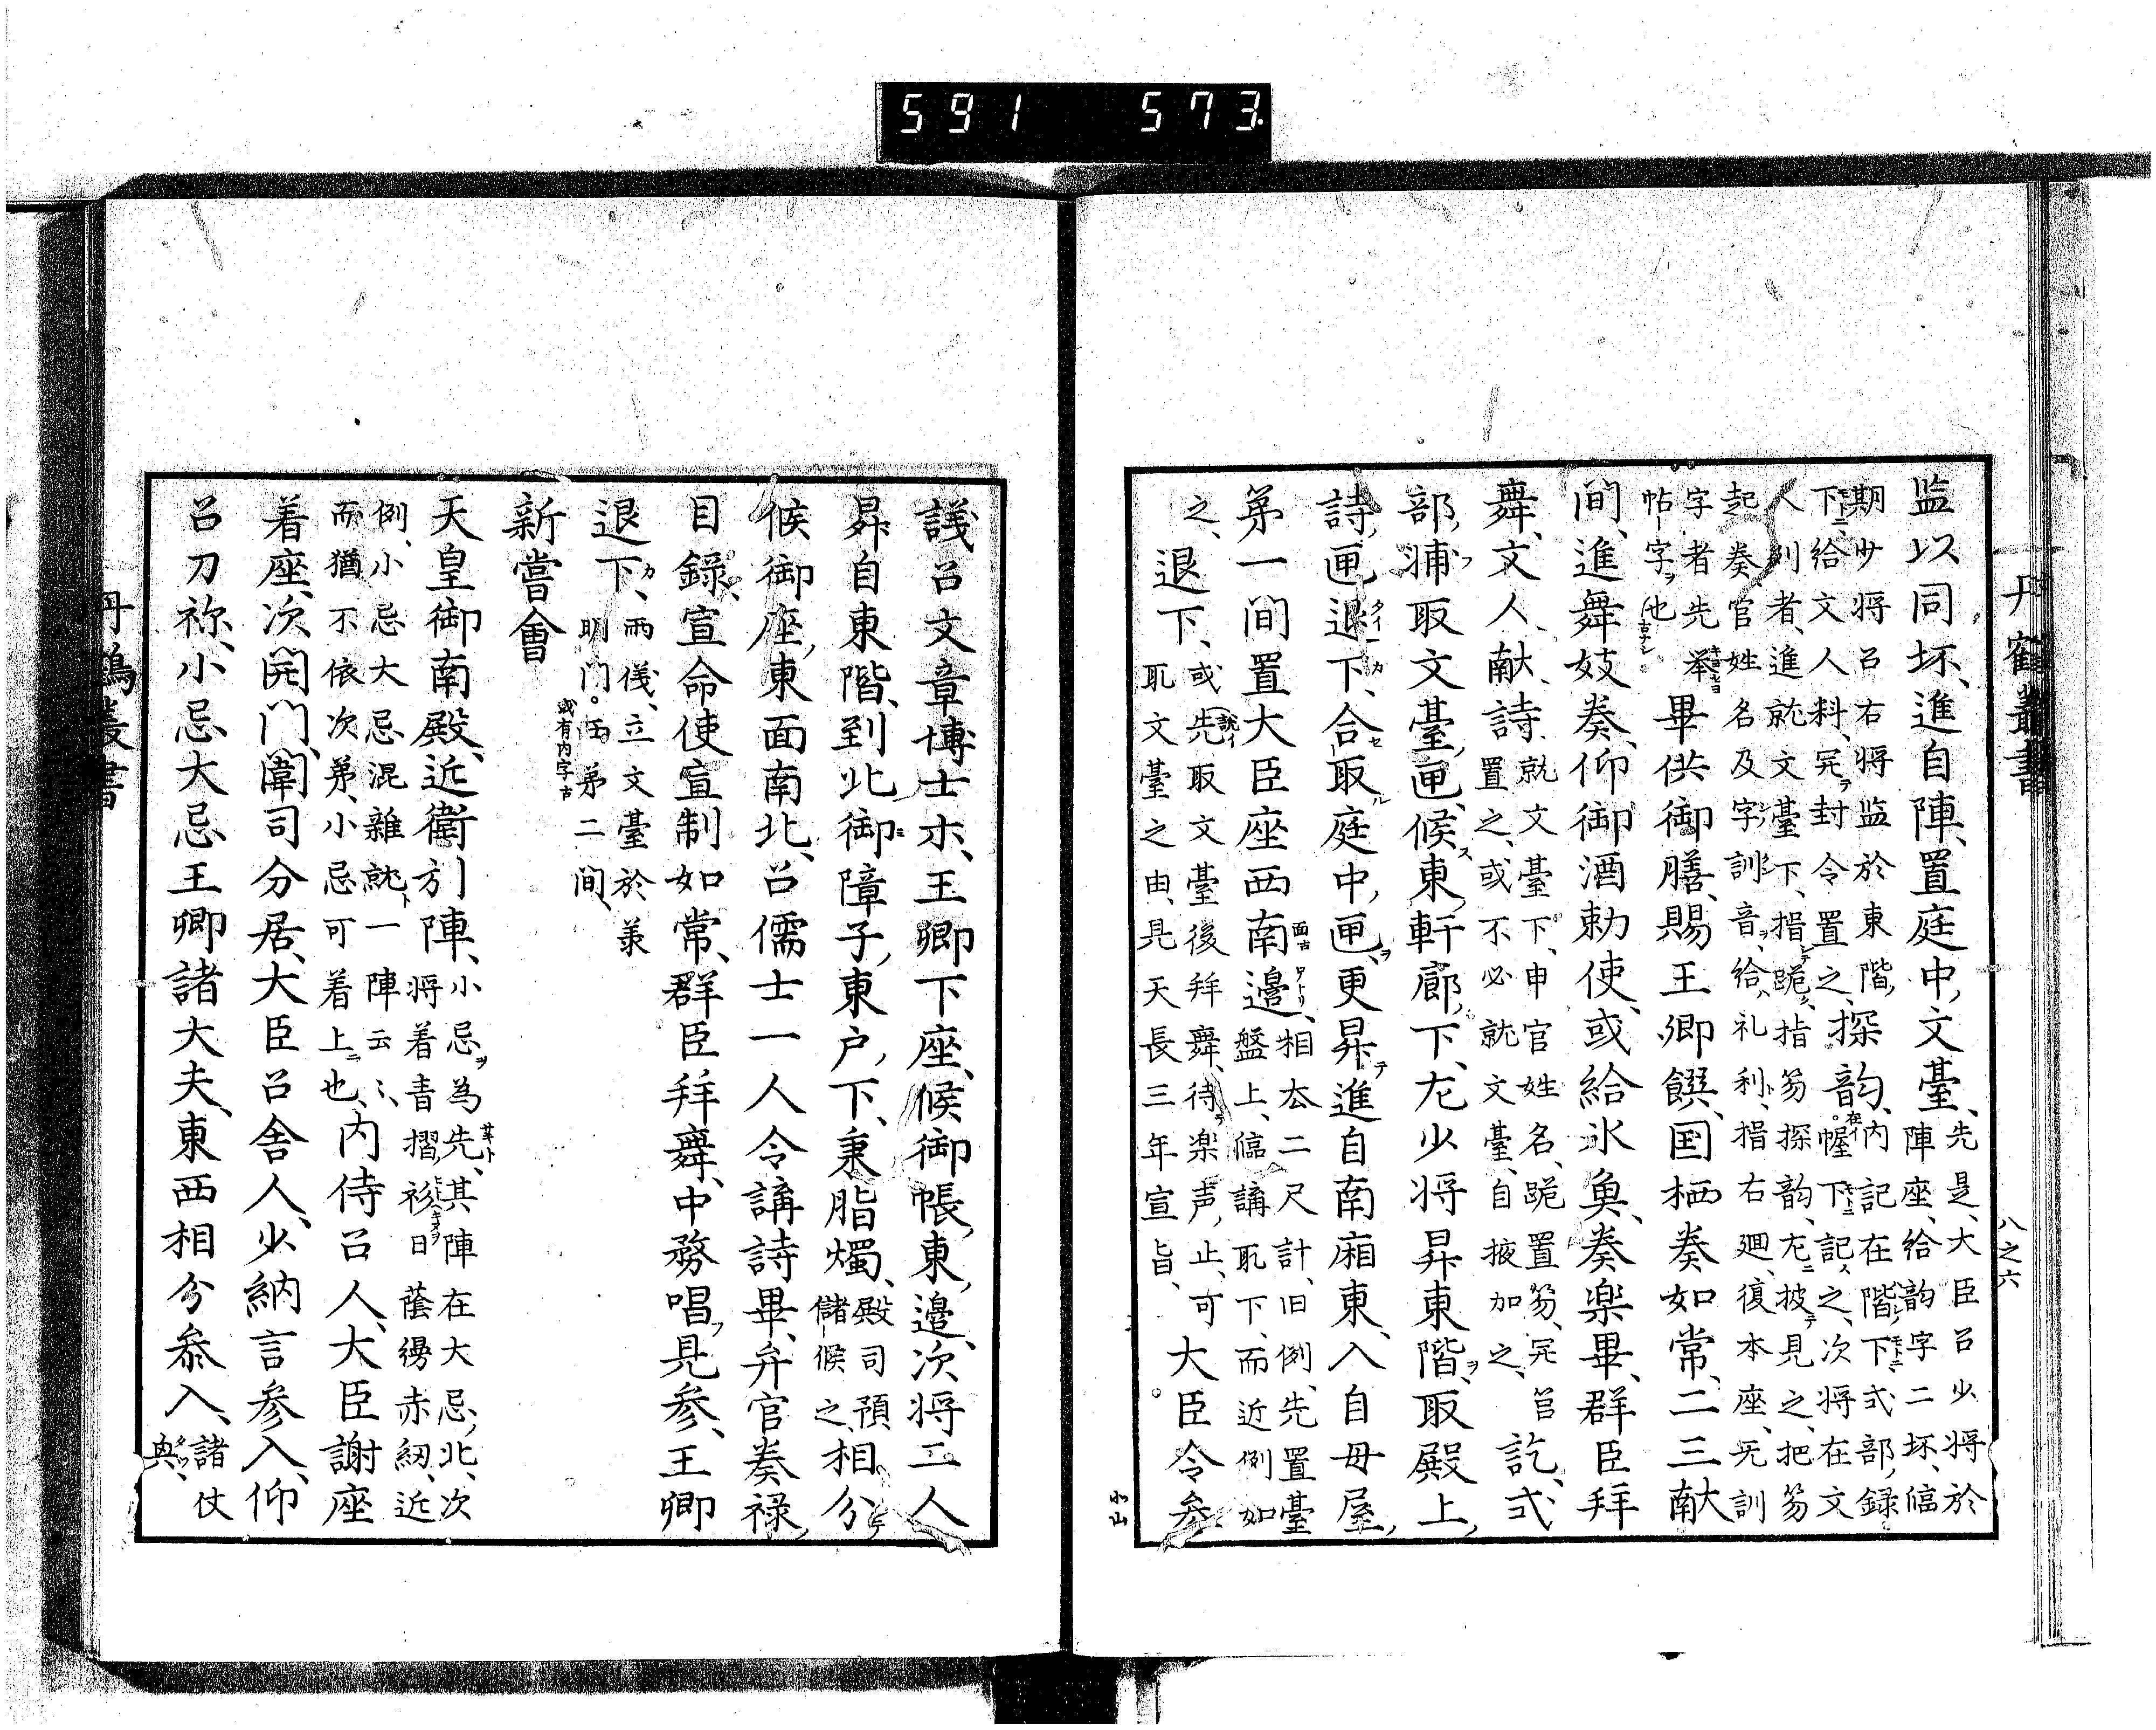 591 573.
丹鶴叢書
八之六
监以同坏、進自陣、置庭中、文臺、先是、大臣召少将於
陣座、給韵字二坏、
期少将召右将监於東階、探韵、内記在階下式部録
下給文人料、完封令置之、幄下記之、次将在文
人列者、進就文臺下、揖跪、指笏探韵、左披見之、把笏
起奏官姓名及字訓音、給礼利、揖右廻、復本座、无訓
字者先挙
帖字也 畢供御膳、賜王卿饌、国栖奏如常、二三献
間、進舞妓奏、仰御酒勅使、或給氷魚、奏楽畢、群臣拝
舞、文人献詩、就文臺下、申官姓名、跪置笏、完筥
置之、或不必就文臺、自掖加之、訖、式
部、輔取文臺、匣、候東軒廊、下、左少将昇東階、取殿上、
詩、匣退下、合取庭中、匣、更昇進自南廂東、入自母屋、
第一間置大臣座西南邊、相去二尺計、旧例、先置臺
盤上、臨講取下、而近例如
之、退下、或先取文臺後拝舞、待楽声、止、可
取文臺之由、見天長三年宣旨、大臣令参
議召文章博士木、王卿下座、候御帳、東、邉、次将二人
昇自東階、到北御障子、東戸、下、秉脂燭、殿司預
儲候之、相分
候御座、東面南北、召儒士一人令講詩畢、弁官奏禄、
目録、宣命使宣制如常、群臣拝舞、中務唱、見参、王卿
退下、雨儀、立文臺於義
明门。西第二間、
或有内字古
新嘗會
天皇御南殿、近衛引陣、小忌為先、其陣在大忌、北、次
将着青摺、衫日蔭縵赤紐、近
例、小忌大忌混雜就一陣云〻、
而猶不依次第、小忌可着上也、内侍召人、大臣謝座
着座、次開门、闈司分居、大臣召舎人、少納言参入、仰
召刀祢、小忌大忌王卿諸大夫、東西相分参入、諸仗
興、
丹鶴叢書